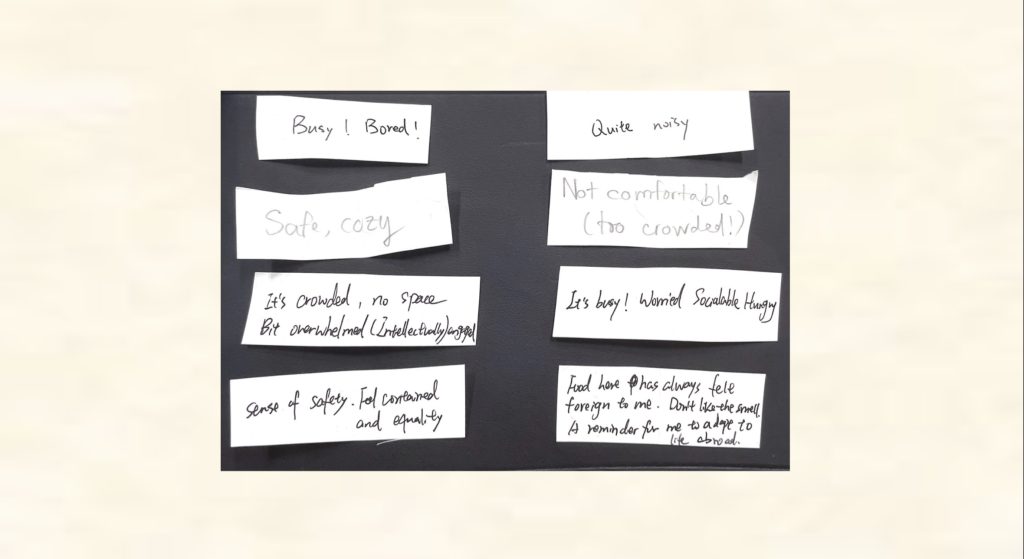 Busy! Bored!
Safe, cozy
It's crowded, no space
Bit overwhelmed (Intellectually) engaged
Sense of safety. Feel contained
and equality
Quite noisy
Not comfortable
(too crowded!)
It's busy! Worried Socalable Hungry
Food here has always felt
foreign to me. Don't like the smell.
A reminder for me to adapt to
life abroad.